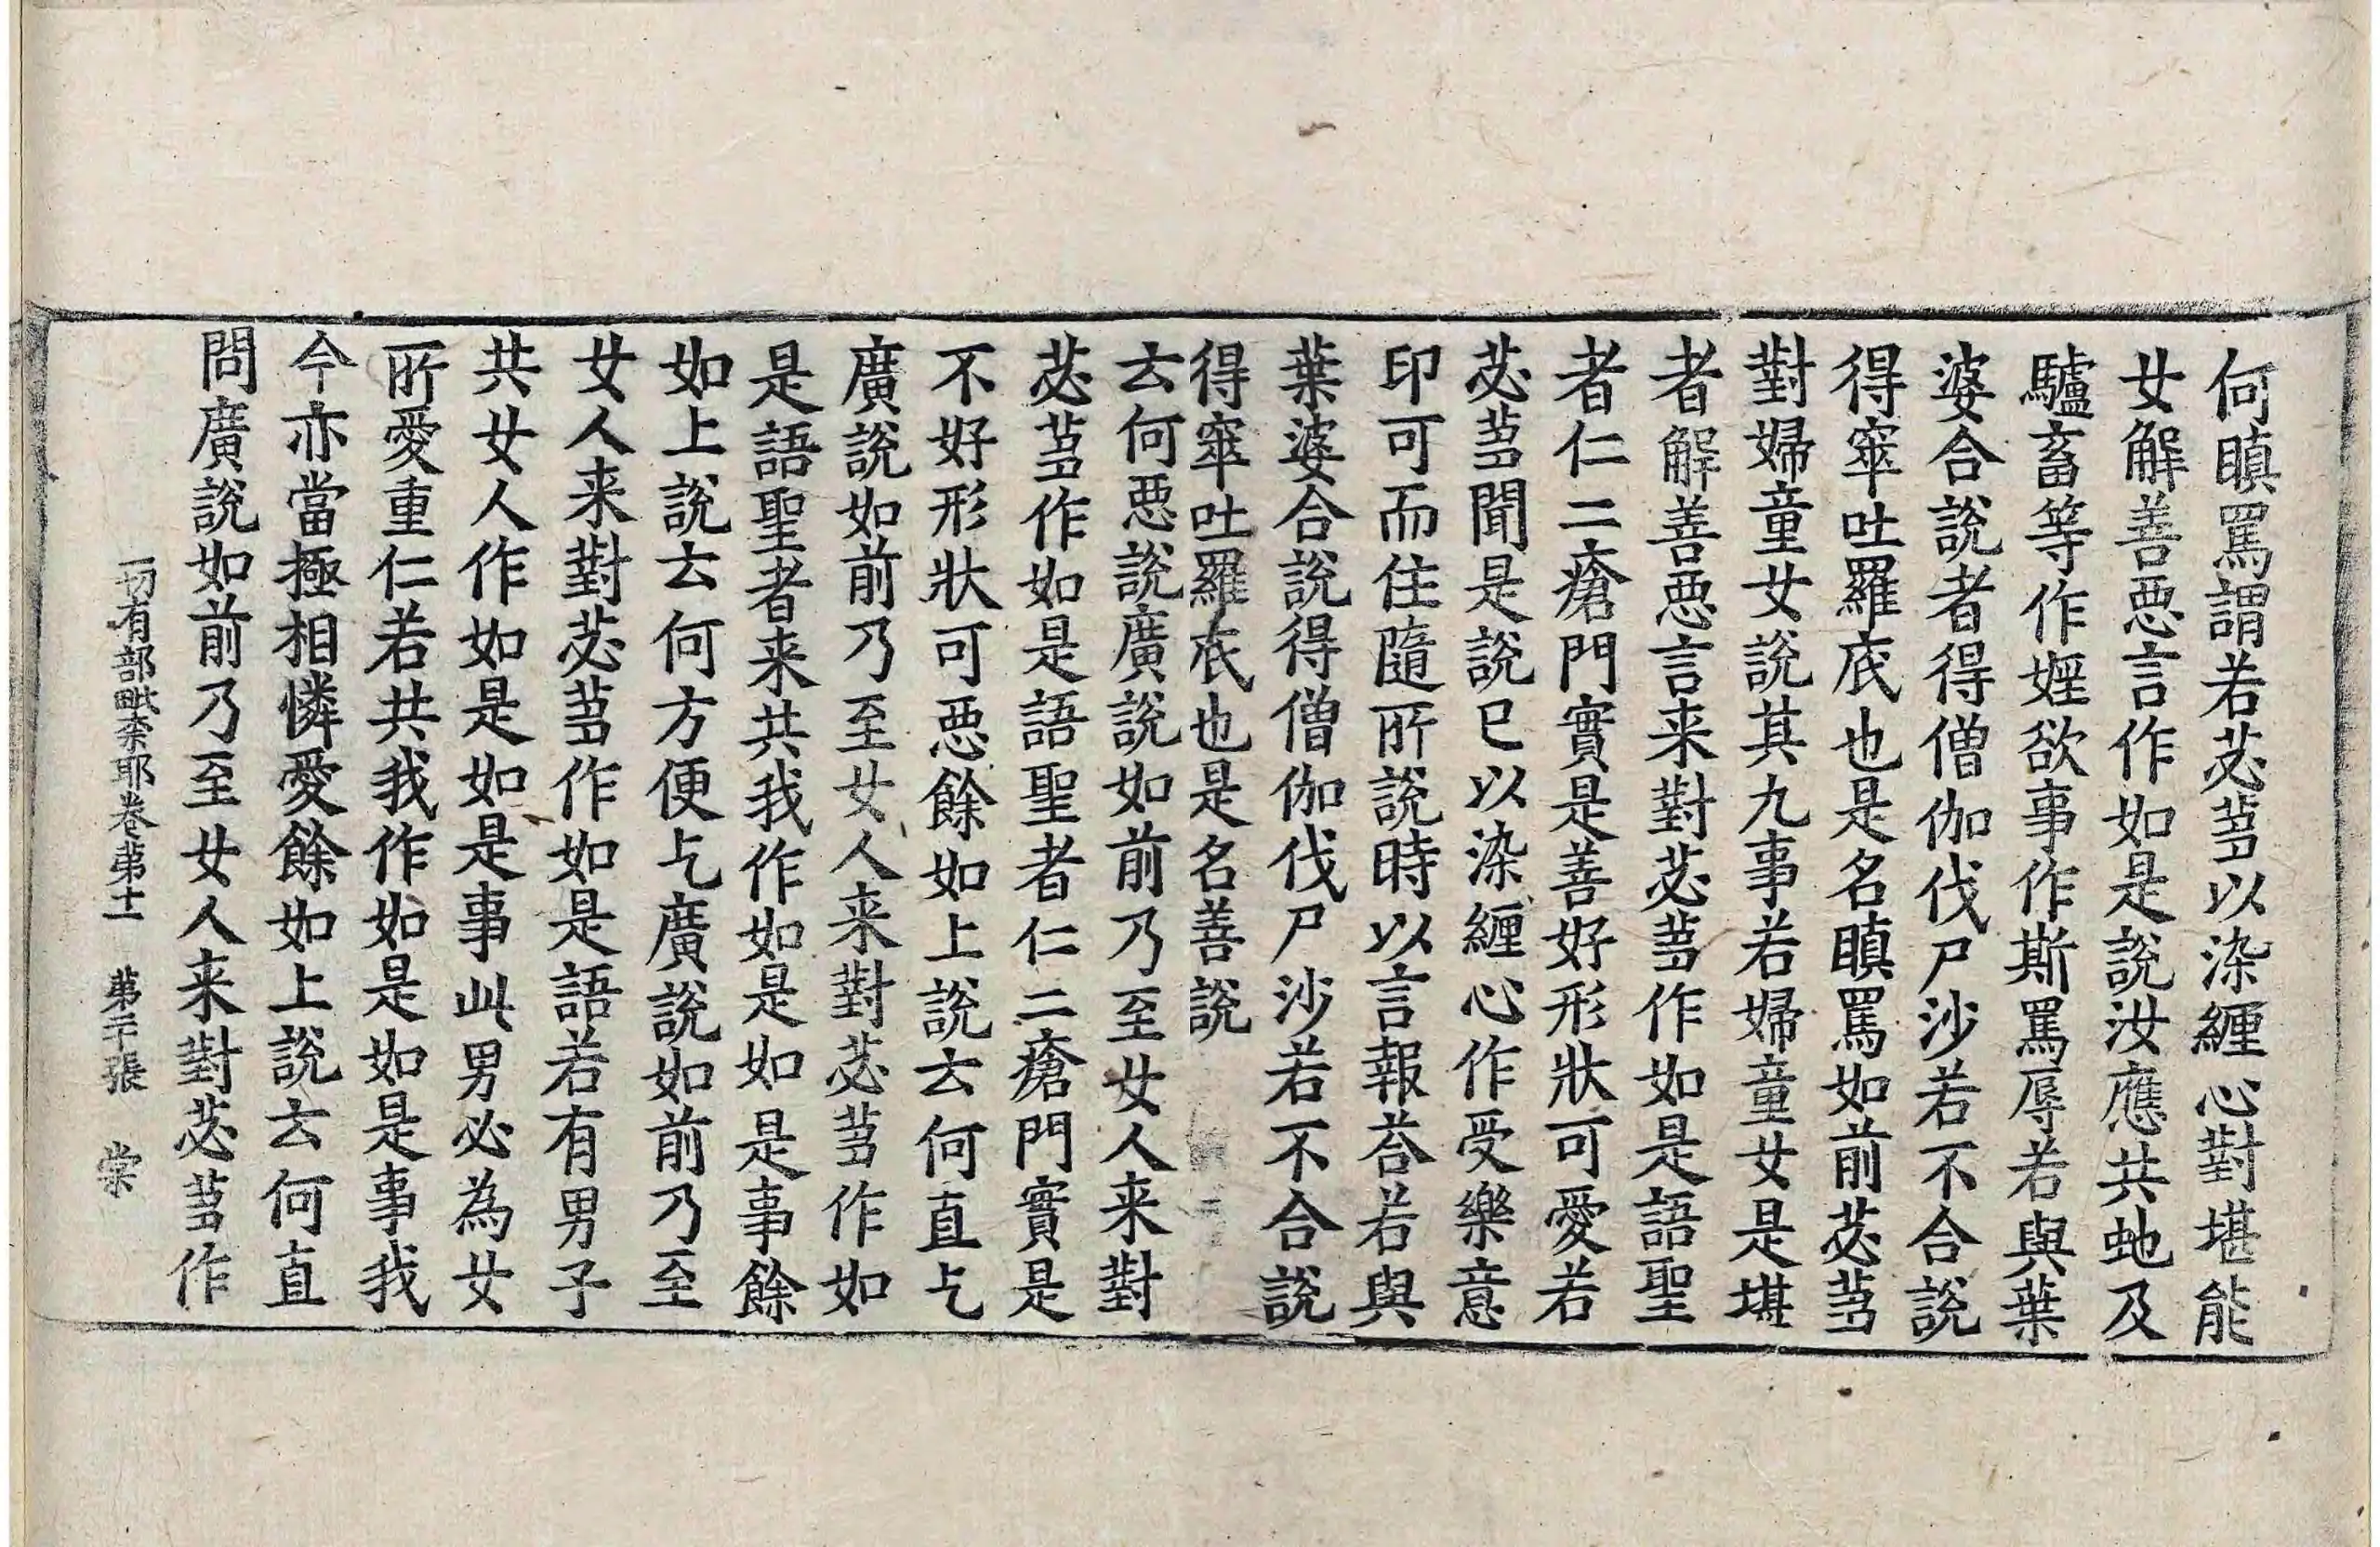 何瞋罵謂若苾蒭以染纏心對堪能
女解善惡言作如是說汝應共虵及
驢畜等作婬欲事作斯罵辱若與葉
婆合說者得僧伽伐尸沙若不合說
得窣吐羅底也是名瞋罵如前苾蒭
對婦童女說其九事若婦童女是堪
者解善惡言来對苾蒭作如是語聖
者仁二瘡門實是善好形狀可愛若
苾蒭聞是說已以染纏心作受樂意
印可而住隨所說時以言報荅若與
葉婆合說得僧伽伐尸沙若不合說
得窣吐羅底也是名善說
云何惡說廣說如前乃至女人来對
苾蒭作如是語聖者仁二瘡門實是
不好形狀可惡餘如上說云何直乞
廣說如前乃至女人来對苾蒭作如
是語聖者来共我作如是如是事餘
如上說云何方便乞廣說如前乃至
女人来對苾蒭作如是語若有男子
共女人作如是如是事此男必為女
所愛重仁若共我作如是如是事我
今亦當極相憐愛餘如上說云何直
問廣說如前乃至女人来對苾蒭作
一切有部毗柰耶卷苐十一 苐二十張 棠